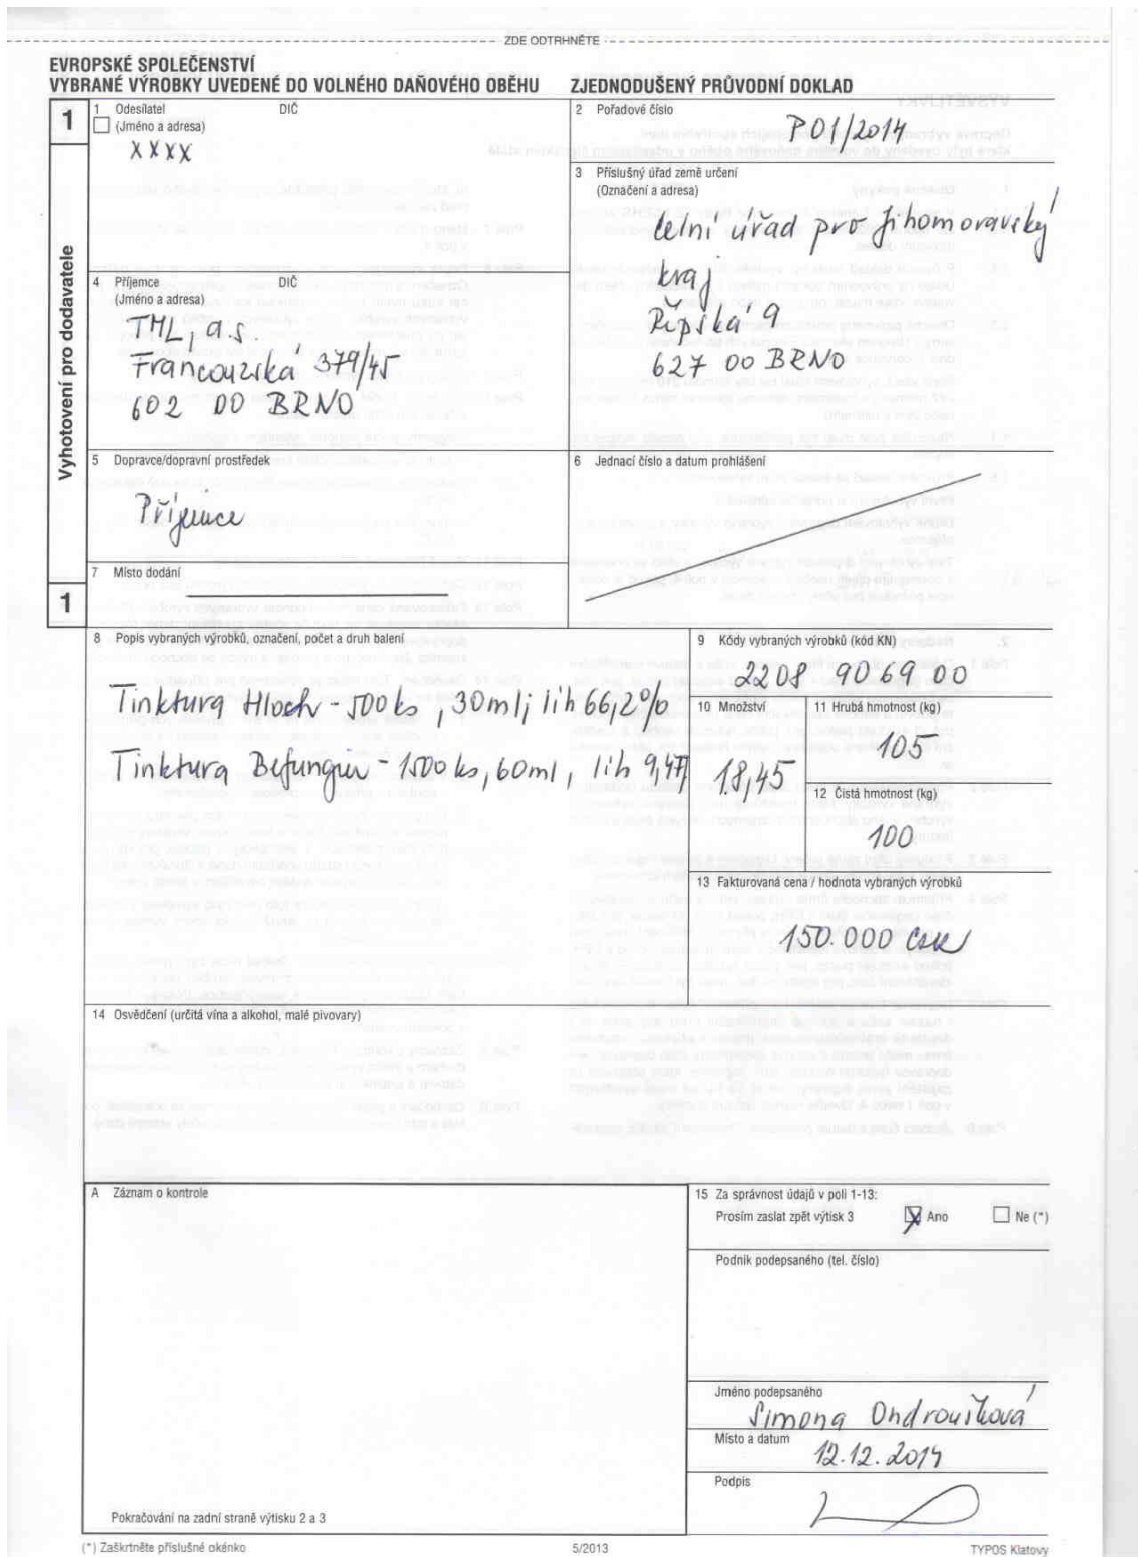 ZDE ODTRHNĚTE
EVROPSKÉ SPOLEČENSTVÍ
VYBRANÉ VÝROBKY UVEDENÉ DO VOLNÉHO DAŇOVÉHO OBĚHU ZJEDNODUŠENÝ PRŮVODNÍ DOKLAD
1
Vyhotovení pro dodavatele
1
1 Odesílatel DIČ
(Jméno a adresa)
XXXX
2 Pořadové číslo
P01/2014
3 Příslušný úřad země určení
(Označení a adresa)
Celní úřad pro Jihomoravský
kraj
Řípská 9
627 00 BRNO
4 Příjemce DIČ
(Jméno a adresa)
TML, a.s.
Francouzská 379/45
602 00 BRNO
5 Dopravce/dopravní prostředek
Příjemce
6 Jednací číslo a datum prohlášení
7 Místo dodání
8 Popis vybraných výrobků, označení, počet a druh balení
Tinktura Hloh - 500ks, 30ml; líh 66,2%
Tinktura Befungin - 1500 ks, 60ml, líh 9,47
9 Kódy vybraných výrobků (kód KN)
2208 9069 00
10 Množství
18,45
11 Hrubá hmotnost (kg)
105
12 Čistá hmotnost (kg)
100
13 Fakturovaná cena / hodnota vybraných výrobků
150.000 CZK
14 Osvědčení (určitá vína a alkohol, malé pivovary)
A Záznam o kontrole
Pokračování na zadní straně výtisku 2 a 3
15 Za správnost údajů v poli 1-13:
Prosím zaslat zpět výtisk 3 Ano Ne (*)
Podnik podepsaného (tel. číslo)
Jméno podepsaného
Simona Ondroušková
Místo a datum
12.12.2014
Podpis
(*) Zaškrtněte příslušné okénko 5/2013 TYPOS Klatovy